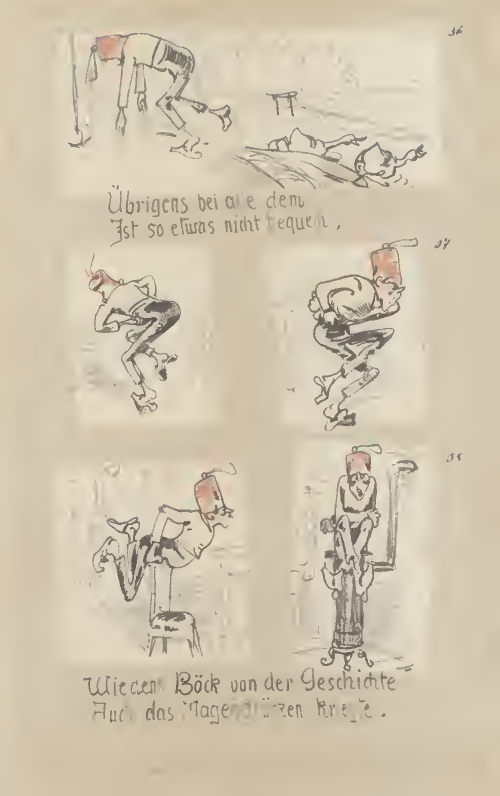 36
Übrigens bei alle dem
Ist so etwas nicht bequem,
37
Wie den Böck von der Geschichte
Auch das